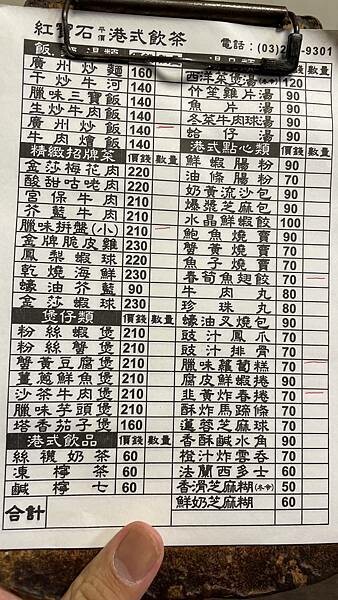 紅寶石 平價 港式飲茶
電話：(03)2 -9301
廣州炒麵 160
干炒牛河 140
臘味三寶飯 140
生炒牛肉飯 140
廣州炒飯 140
牛肉燴飯 140
精緻招牌菜 價錢 數量
金莎梅花肉 220
酸甜咕老肉 220
宮保牛肉 210
芥藍牛肉 210
臘味拼盤(小) 210
金牌脆皮雞 230
鳳梨蝦球 220
乾燒海鮮 230
蠔油芥藍 90
金莎蝦球 230
煲仔類 價錢 數量
粉絲蝦煲 210
粉絲蟹煲 210
蟹黃豆腐煲 210
薑蔥鮮魚煲 210
沙茶牛肉煲 210
臘味芋頭煲 210
塔香茄子煲 160
港式飲品 價錢 數量
絲襪奶茶 60
凍檸茶 60
鹹檸七 60
合計
價錢 數量
西洋菜煲湯(本冬) 120
竹笙雞片湯 90
魚片湯 90
冬菜牛肉球湯 90
蛤仔湯 90
港式點心類 價錢 數量
鮮蝦腸粉 90
油條腸粉 70
奶黃流沙包 90
爆漿芝麻包 90
水晶鮮蝦餃 100
鮑魚燒賣 90
蟹黃燒賣 70
魚子燒賣 70
春筍魚翅餃 70
牛肉丸 80
珍珠丸 80
蠔油叉燒包 90
豉汁鳳爪 70
豉汁排骨 70
臘味蘿蔔糕 70
腐皮鮮蝦捲 90
韭黃炸春捲 70
酥炸馬蹄條 70
蓮蓉芝麻球 70
香酥鹹水角 90
橙汁炸雲吞 70
法蘭西多士 60
香滑芝麻糊(本冬) 50
鮮奶芝麻糊 60